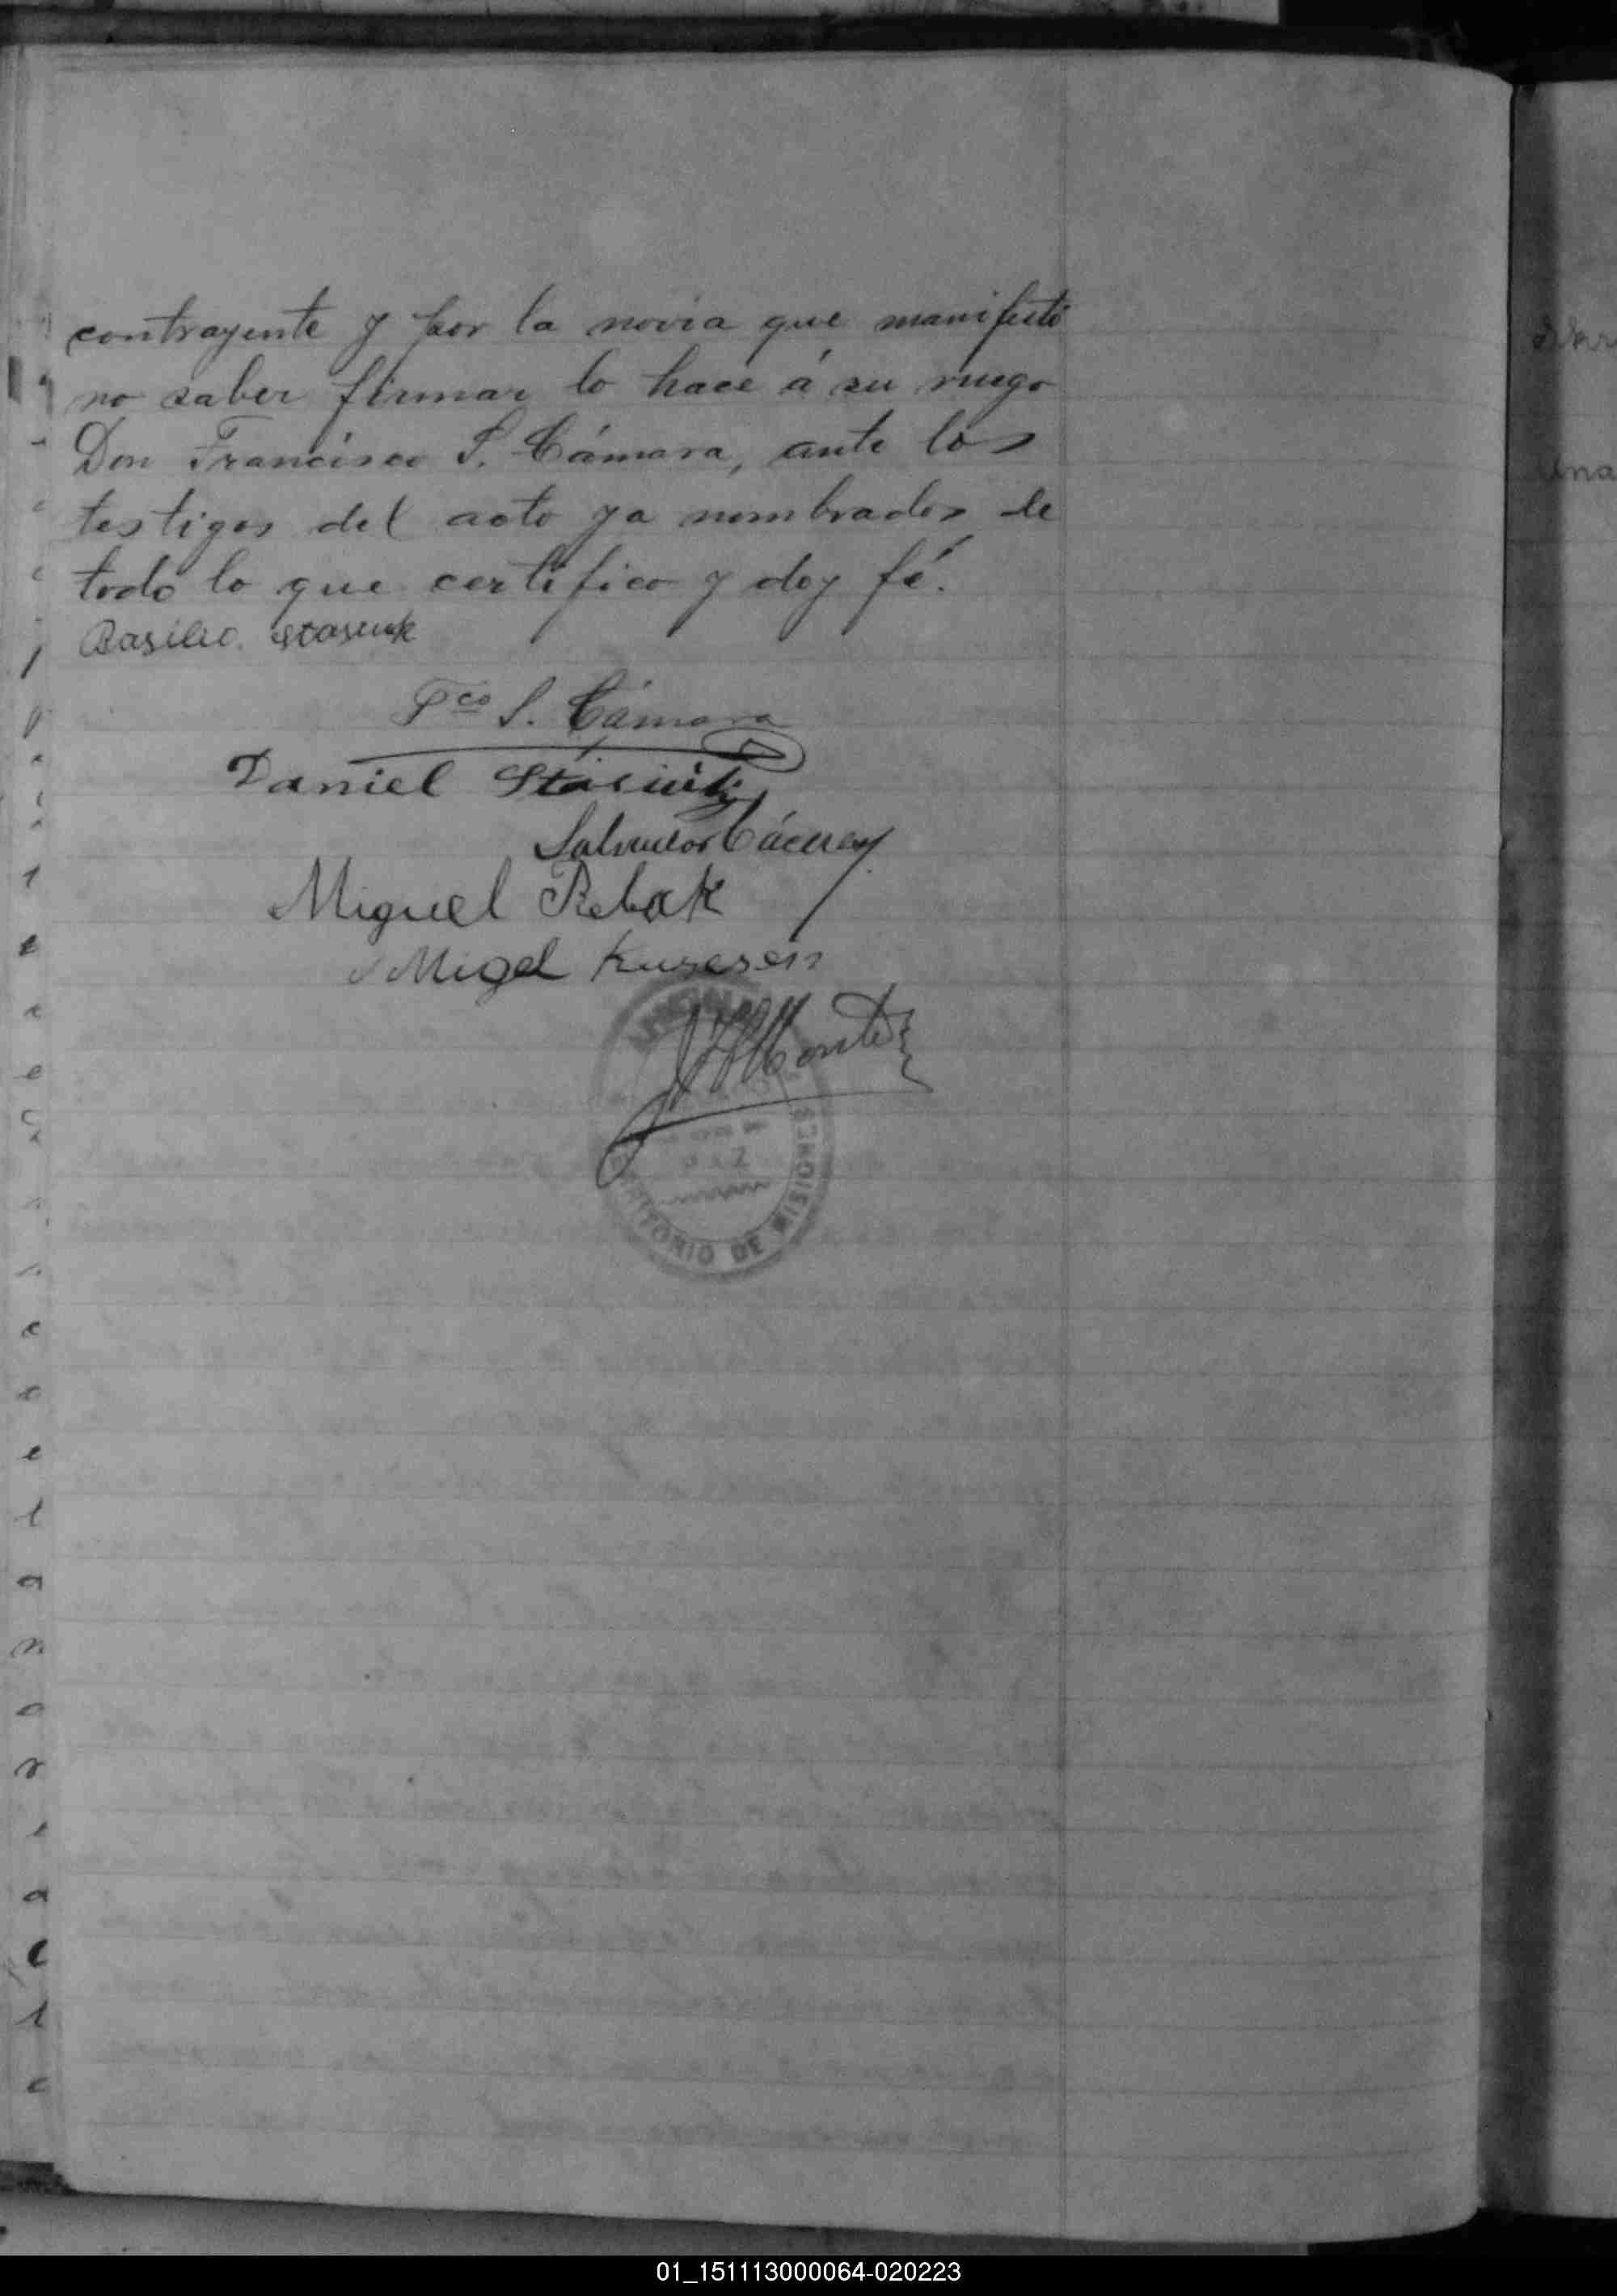 contrayente y por la novia que manifestó
no saber firmar lo hace á su ruego
Don Francisco S. Cámara, ante los
testigos del acto ya nombrados de
todo lo que certifico y doy fé.
Basilio Stasiuk
Fco S. Cámara
Daniel Stasiuk
Salvador Cáceres
Miguel Rebak
Migel
TERRITORIO DE MISIONES
PAZ
01_151113000064-020223